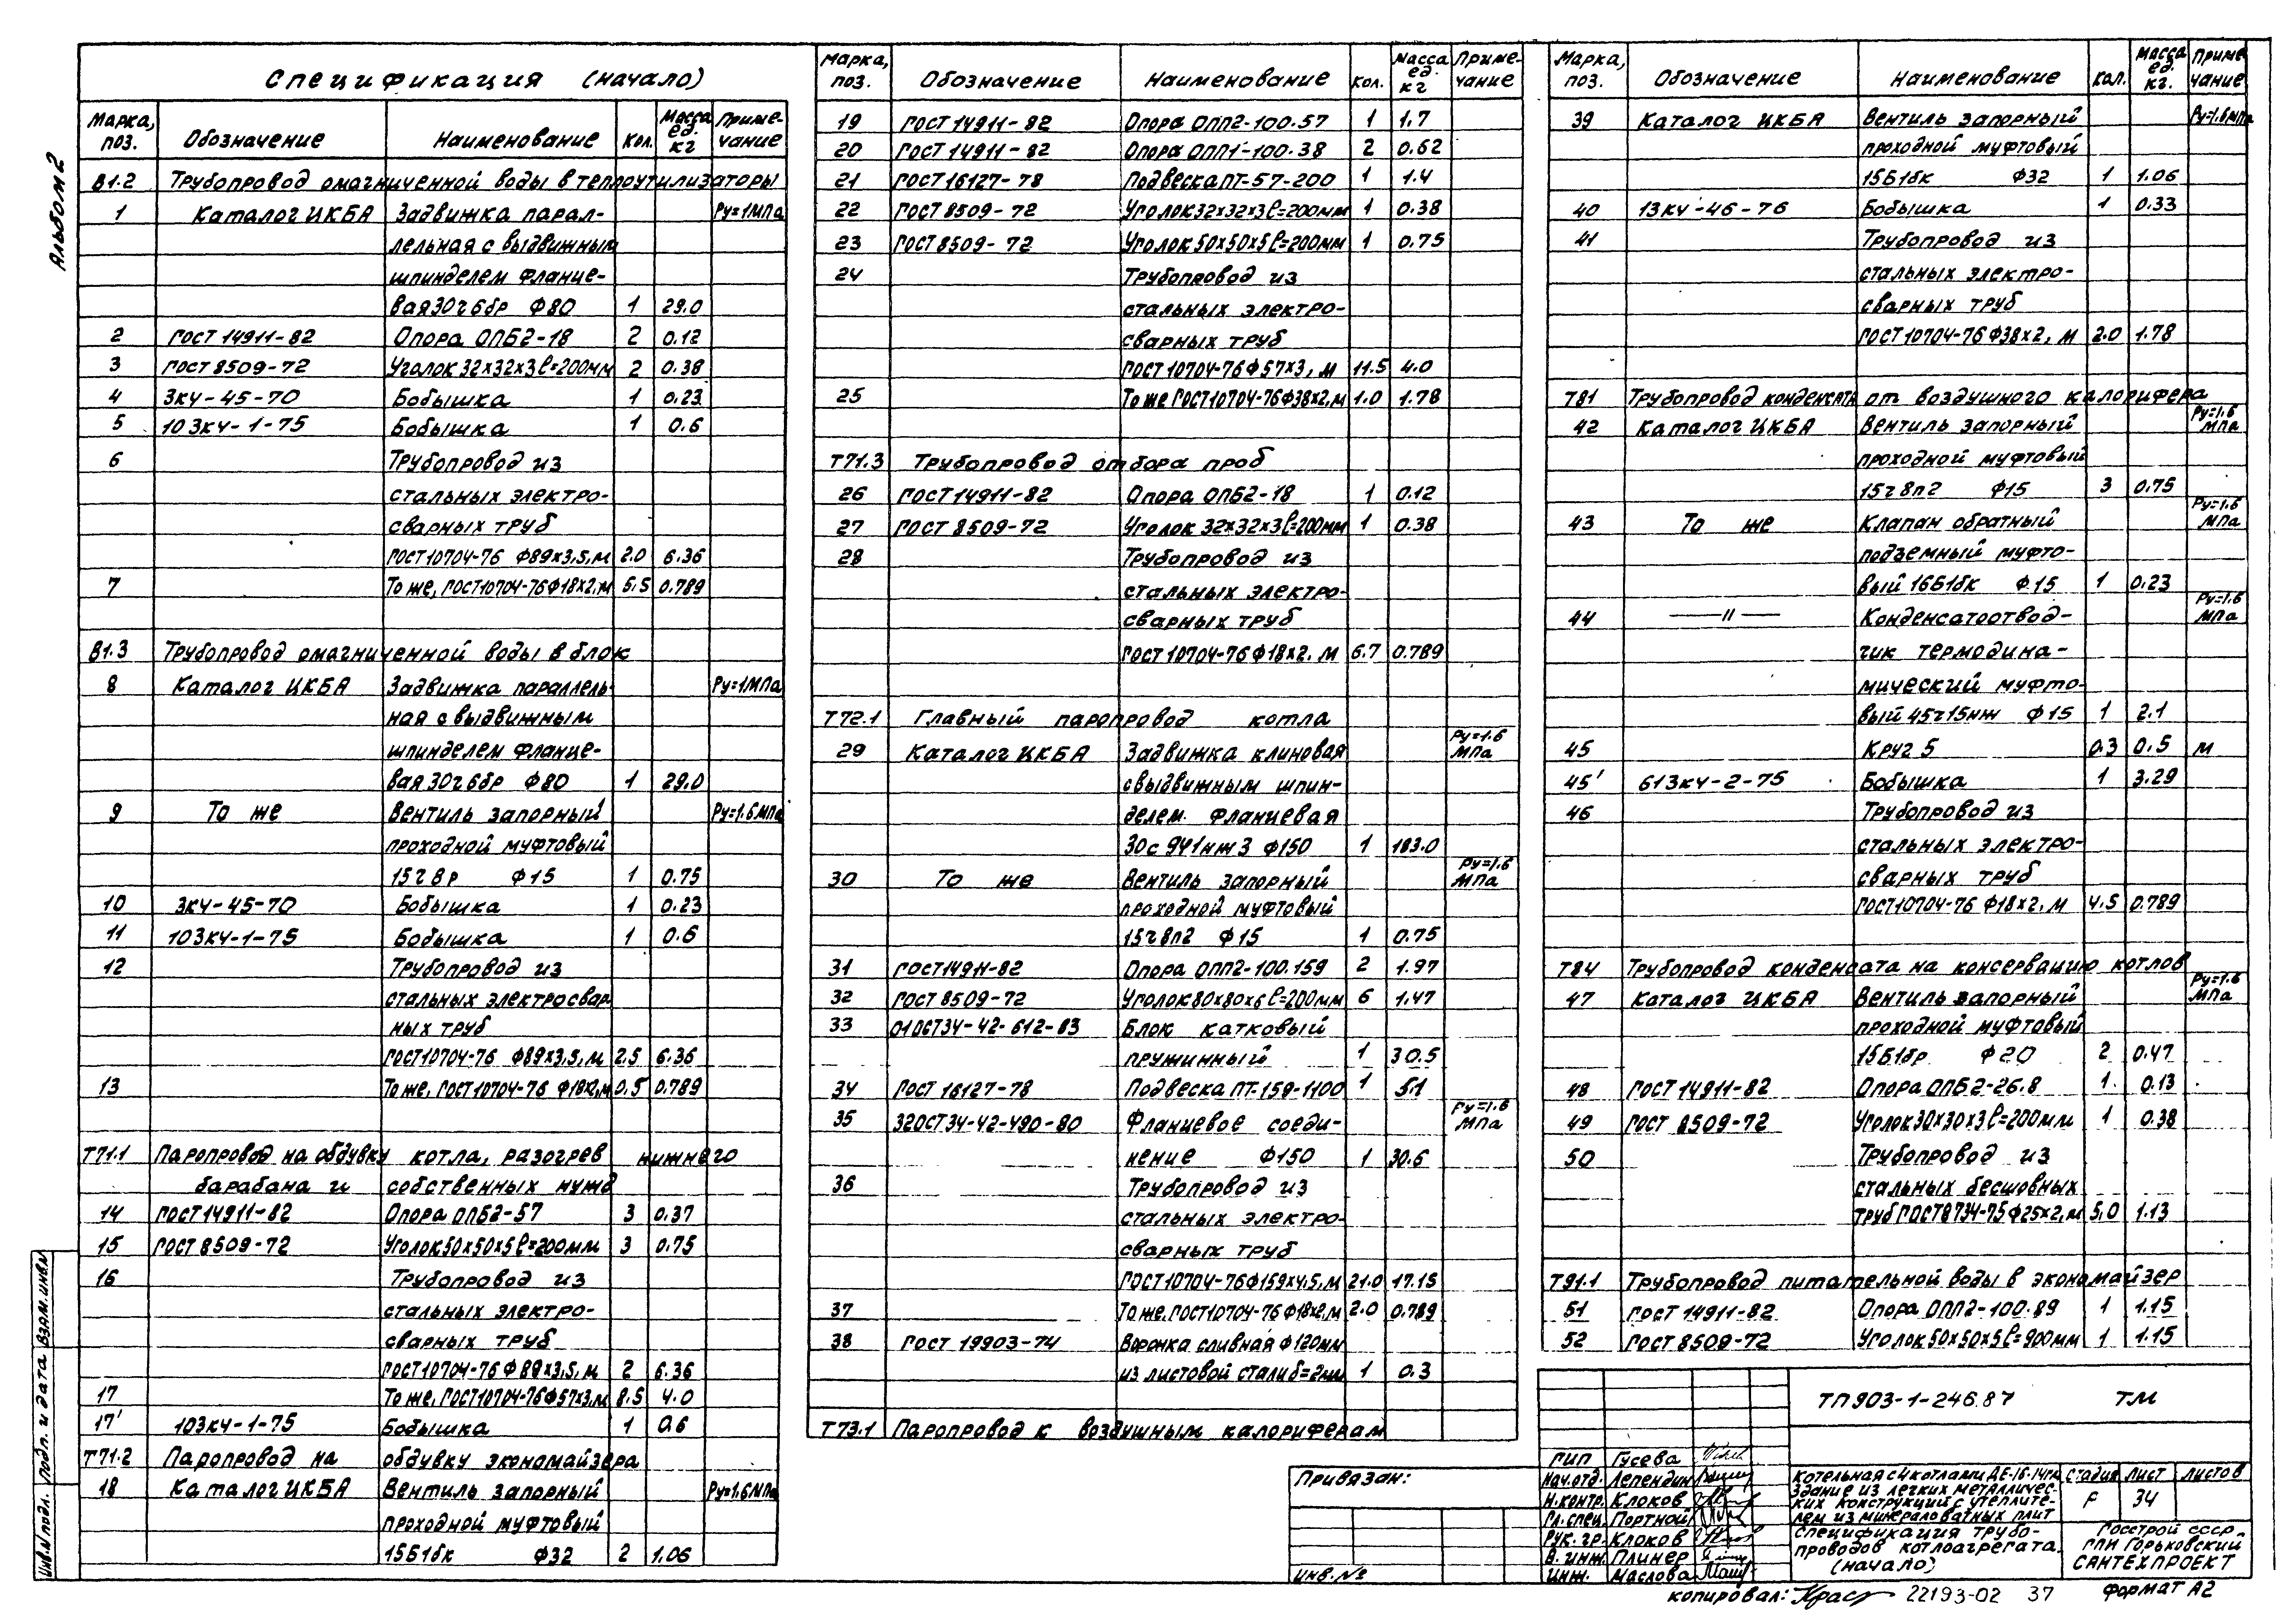 Альбом 2
Спецификация (начало)
Марка, поз. Обозначение Наименование Кол. Масса ед. кг Примечание
В1.2 Трубопровод омагниченной воды в теплоутилизаторы
1 Каталог ЦКБА Задвижка парал- Ру=1МПа
лельная с выдвижным
шпинделем фланце-
вая 30ч6бр Ф80 1 29.0
2 ГОСТ 14911-82 Опора ОПБ2-18 2 0.12
3 ГОСТ 8509-72 Уголок 32х32х3 ℓ=200мм 2 0.38
4 3КЧ-45-70 Бобышка 1 0.23
5 103КЧ-1-75 Бобышка 1 0.6
6 Трубопровод из
стальных электро-
сварных труб
ГОСТ10704-76 Ф89х3,5,м 2.0 6.36
7 То же, ГОСТ10704-76 Ф18х2,м 5.5 0.789
В1.3 Трубопровод омагниченной воды в блок
8 Каталог ЦКБА Задвижка параллель- Ру=1МПа
ная с выдвижным
шпинделем фланце-
вая 30ч6бр Ф80 1 29.0
9 То же Вентиль запорный Ру=1.6МПа
проходной муфтовый
15ч8р Ф15 1 0.75
10 3КЧ-45-70 Бобышка 1 0.23
11 103КЧ-1-75 Бобышка 1 0.6
12 Трубопровод из
стальных электросвар
ных труб
ГОСТ10704-76 Ф89х3,5,м 2.5 6.36
13 То же, ГОСТ10704-76 Ф18х2,м 0.5 0.789
Т71.1 Паропровод на обдувку котла, разогрев нижнего
барабана и собственных нужд
14 ГОСТ14911-82 Опора ОПБ2-57 3 0.37
15 ГОСТ 8509-72 Уголок50х50х5 ℓ=200мм 3 0.75
16 Трубопровод из
стальных электро-
сварных труб
ГОСТ10704-76 Ф89х3,5,м 2 6.36
17 То же, ГОСТ10704-76Ф57х3,м 8.5 4.0
17' 103КЧ-1-75 Бобышка 1 0.6
Т71.2 Паропровод на обдувку экономайзера
18 Каталог ЦКБА Вентиль запорный Ру=1.6МПа
проходной муфтовый
15Б1бк Ф32 2 1.06
Марка, поз. Обозначение Наименование Кол. Масса ед. кг Примечание
19 ГОСТ 14911-82 Опора ОПП2-100.57 1 1.7
20 ГОСТ 14911-82 Опора ОПП1-100.38 2 0.62
21 ГОСТ 16127-78 Подвеска ПТ-57-200 1 1.4
22 ГОСТ 8509-72 Уголок32х32х3 ℓ=200мм 1 0.38
23 ГОСТ 8509-72 Уголок 50х50х5 ℓ=200мм 1 0.75
24 Трубопровод из
стальных электро-
сварных труб
ГОСТ10704-76Ф57х3, м 11.5 4.0
25 То же ГОСТ10704-76Ф38х2,м 1.0 1.78
Т71.3 Трубопровод отбора проб
26 ГОСТ14911-82 Опора ОПБ2-18 1 0.12
27 ГОСТ 8509-72 Уголок 32х32х3 ℓ=200мм 1 0.38
28 Трубопровод из
стальных электро-
сварных труб
ГОСТ10704-76 Ф18х2. м 6.7 0.789
Т72.1 Главный паропровод котла
29 Каталог ЦКБА Задвижка клиновая Ру=1.6 МПа
с выдвижным шпин-
делем фланцевая
30с941нж3 Ф150 1 183.0
30 То же Вентиль запорный Ру=1.6 МПа
проходной муфтовый
15ч8п2 Ф15 1 0.75
31 ГОСТ14911-82 Опора ОПП2-100.159 2 1.97
32 ГОСТ 8509-72 Уголок80х80х6 ℓ=200мм 6 1.47
33 01ОСТ34-42-612-83 Блок катковый
пружинный 1 30.5
34 ГОСТ 16127-78 Подвеска ПТ-159-1100 1 51
35 32ОСТ34-42-490-80 Фланцевое соеди- Ру=1.6 МПа
нение Ф150 1 30.6
36 Трубопровод из
стальных электро-
сварных труб
ГОСТ10704-76Ф159х4,5,м 21.0 17.15
37 То же, ГОСТ10704-76 Ф18х2,м 2.0 0.789
38 ГОСТ 19903-74 Воронка сливная Ф120мм
из листовой стали б=2мм 1 0.3
Т73.1 Паропровод к воздушным калориферам
Марка, поз. Обозначение Наименование Кол. Масса ед. кг. Примечание
39 Каталог ЦКБА Вентиль запорный Ру=1.6МПа
проходной муфтовый
15Б1бк Ф32 1 1.06
40 13КЧ-46-76 Бобышка 1 0.33
41 Трубопровод из
стальных электро-
сварных труб
ГОСТ10704-76 Ф38х2, м 2.0 1.78
Т81 Трубопровод конденсата от воздушного калорифера
42 Каталог ЦКБА Вентиль запорный Ру=1.6 МПа
проходной муфтовый
15ч8п2 Ф15 3 0.75
43 То же Клапан обратный Ру=1.6 МПа
подземный муфто-
вый 16Б1бк Ф15 1 0.23
44 —— 〃 —— Конденсатоотвод- Ру=1.6 МПа
чик термодина-
мический муфто-
вый 45ч15нж Ф15 1 2.1
45 Круг 5 0.3 0.5 м
45' 613КЧ-2-75 Бобышка 1 3.29
46 Трубопровод из
стальных электро-
сварных труб
ГОСТ10704-76 Ф18х2, м 4.5 0.789
Т84 Трубопровод конденсата на консервацию котлов
47 Каталог ЦКБА Вентиль запорный Ру=1.6 МПа
проходной муфтовый
15Б1бр Ф20 2 0.47
48 ГОСТ 14911-82 Опора ОПБ2-26.8 1. 0.13
49 ГОСТ 8509-72 Уголок30х30х3 ℓ=200мм 1 0.38
50 Трубопровод из
стальных бесшовных
труб ГОСТ8734-75Ф25х2,м 5,0 1.13
Т91.1 Трубопровод питательной воды в экономайзер
51 ГОСТ 14911-82 Опора ОПП2-100.89 1 1.15
52 ГОСТ 8509-72 Уголок 50х50х5 ℓ=900мм 1 1.15
ТП903-1-246.87 ТМ
Привязан:
инв. №
ГИП Гусева
Нач.отд. Лепендин
Н.контр. Клоков
Гл.спец. Портной
Рук.гр. Клоков
В.инж. Плинер
Инж. Маслова
Котельная с 4 котлами ДЕ-16-14гм
Здание из легких металличес-
ких конструкций с утеплите-
лем из минераловатных плит
Стадия Лист Листов
Р 34
Спецификация трубо-
проводов котлоагрегата.
(начало)
Госстрой СССР
ГПИ Горьковский
САНТЕХПРОЕКТ
Инв.№ подл. Подп. и дата Взам.инв.№
копировал: Крас 22193-02 37 Формат А2